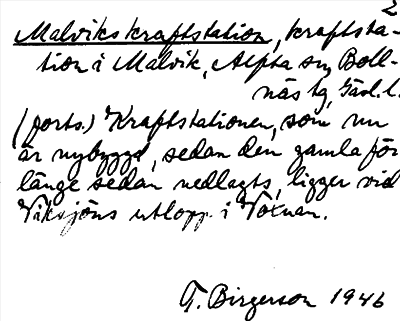 2
Malvikskraftstation, kraftsta-
tion i Malvik, Alfta sn, Boll-
näs tg, Gävl. l.
(forts.) Kraftstationen, som nu
är nybyggd, sedan den gamla för
länge sedan nedlagts, ligger vid
Viksjöns utlopp i Voxnan.
T. Birgerson 1946